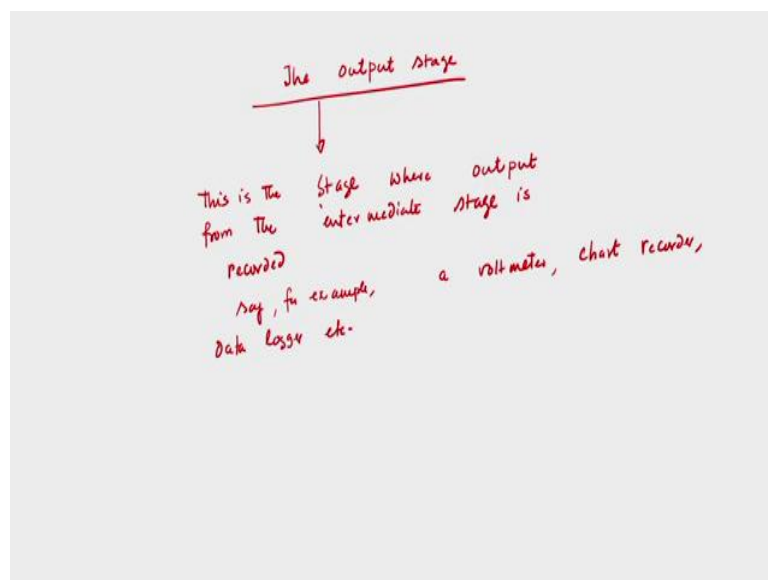 The output stage
This is the stage where output
from the intermediate stage is
recorded
say, for example, a voltmeter, chart recorder,
Data logger etc.